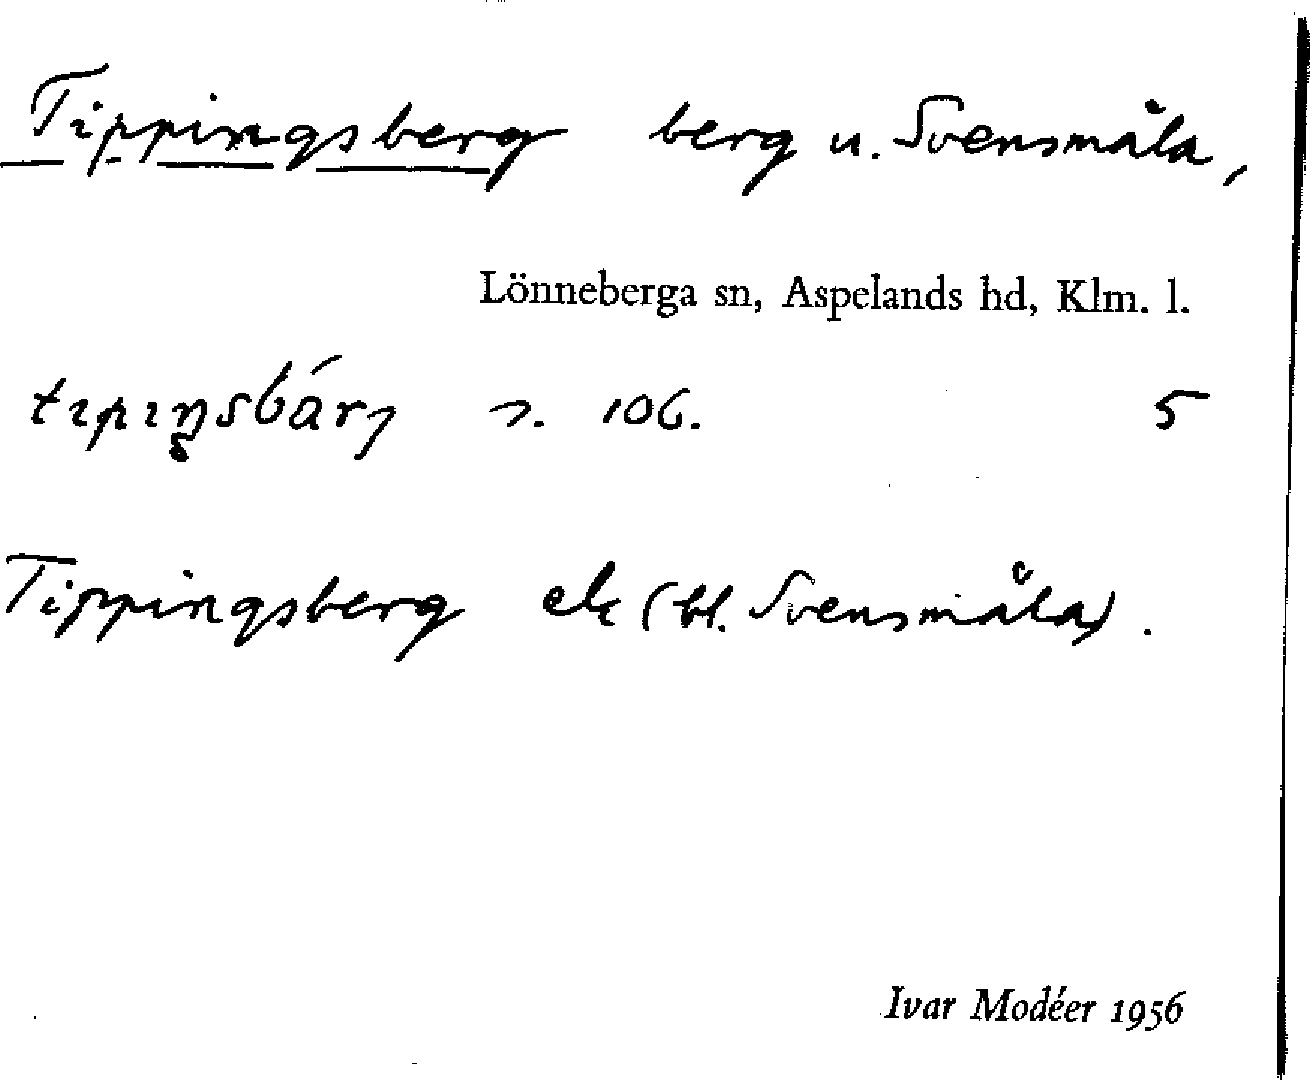 Tippingsberg berg u. Svensmåla,
Lönneberga sn, Aspelands hd, Klm. l.
tipiŋsbárj s. 106. 5
Tippingsberg ek (bl. Svensmåla).
Ivar Modéer 1956